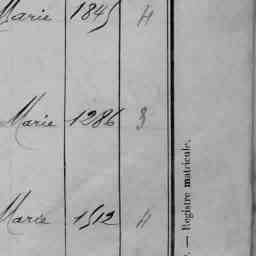 Marie 1845 H
Marie 1286 3
Marie 1512 H
. — Registre matricule.